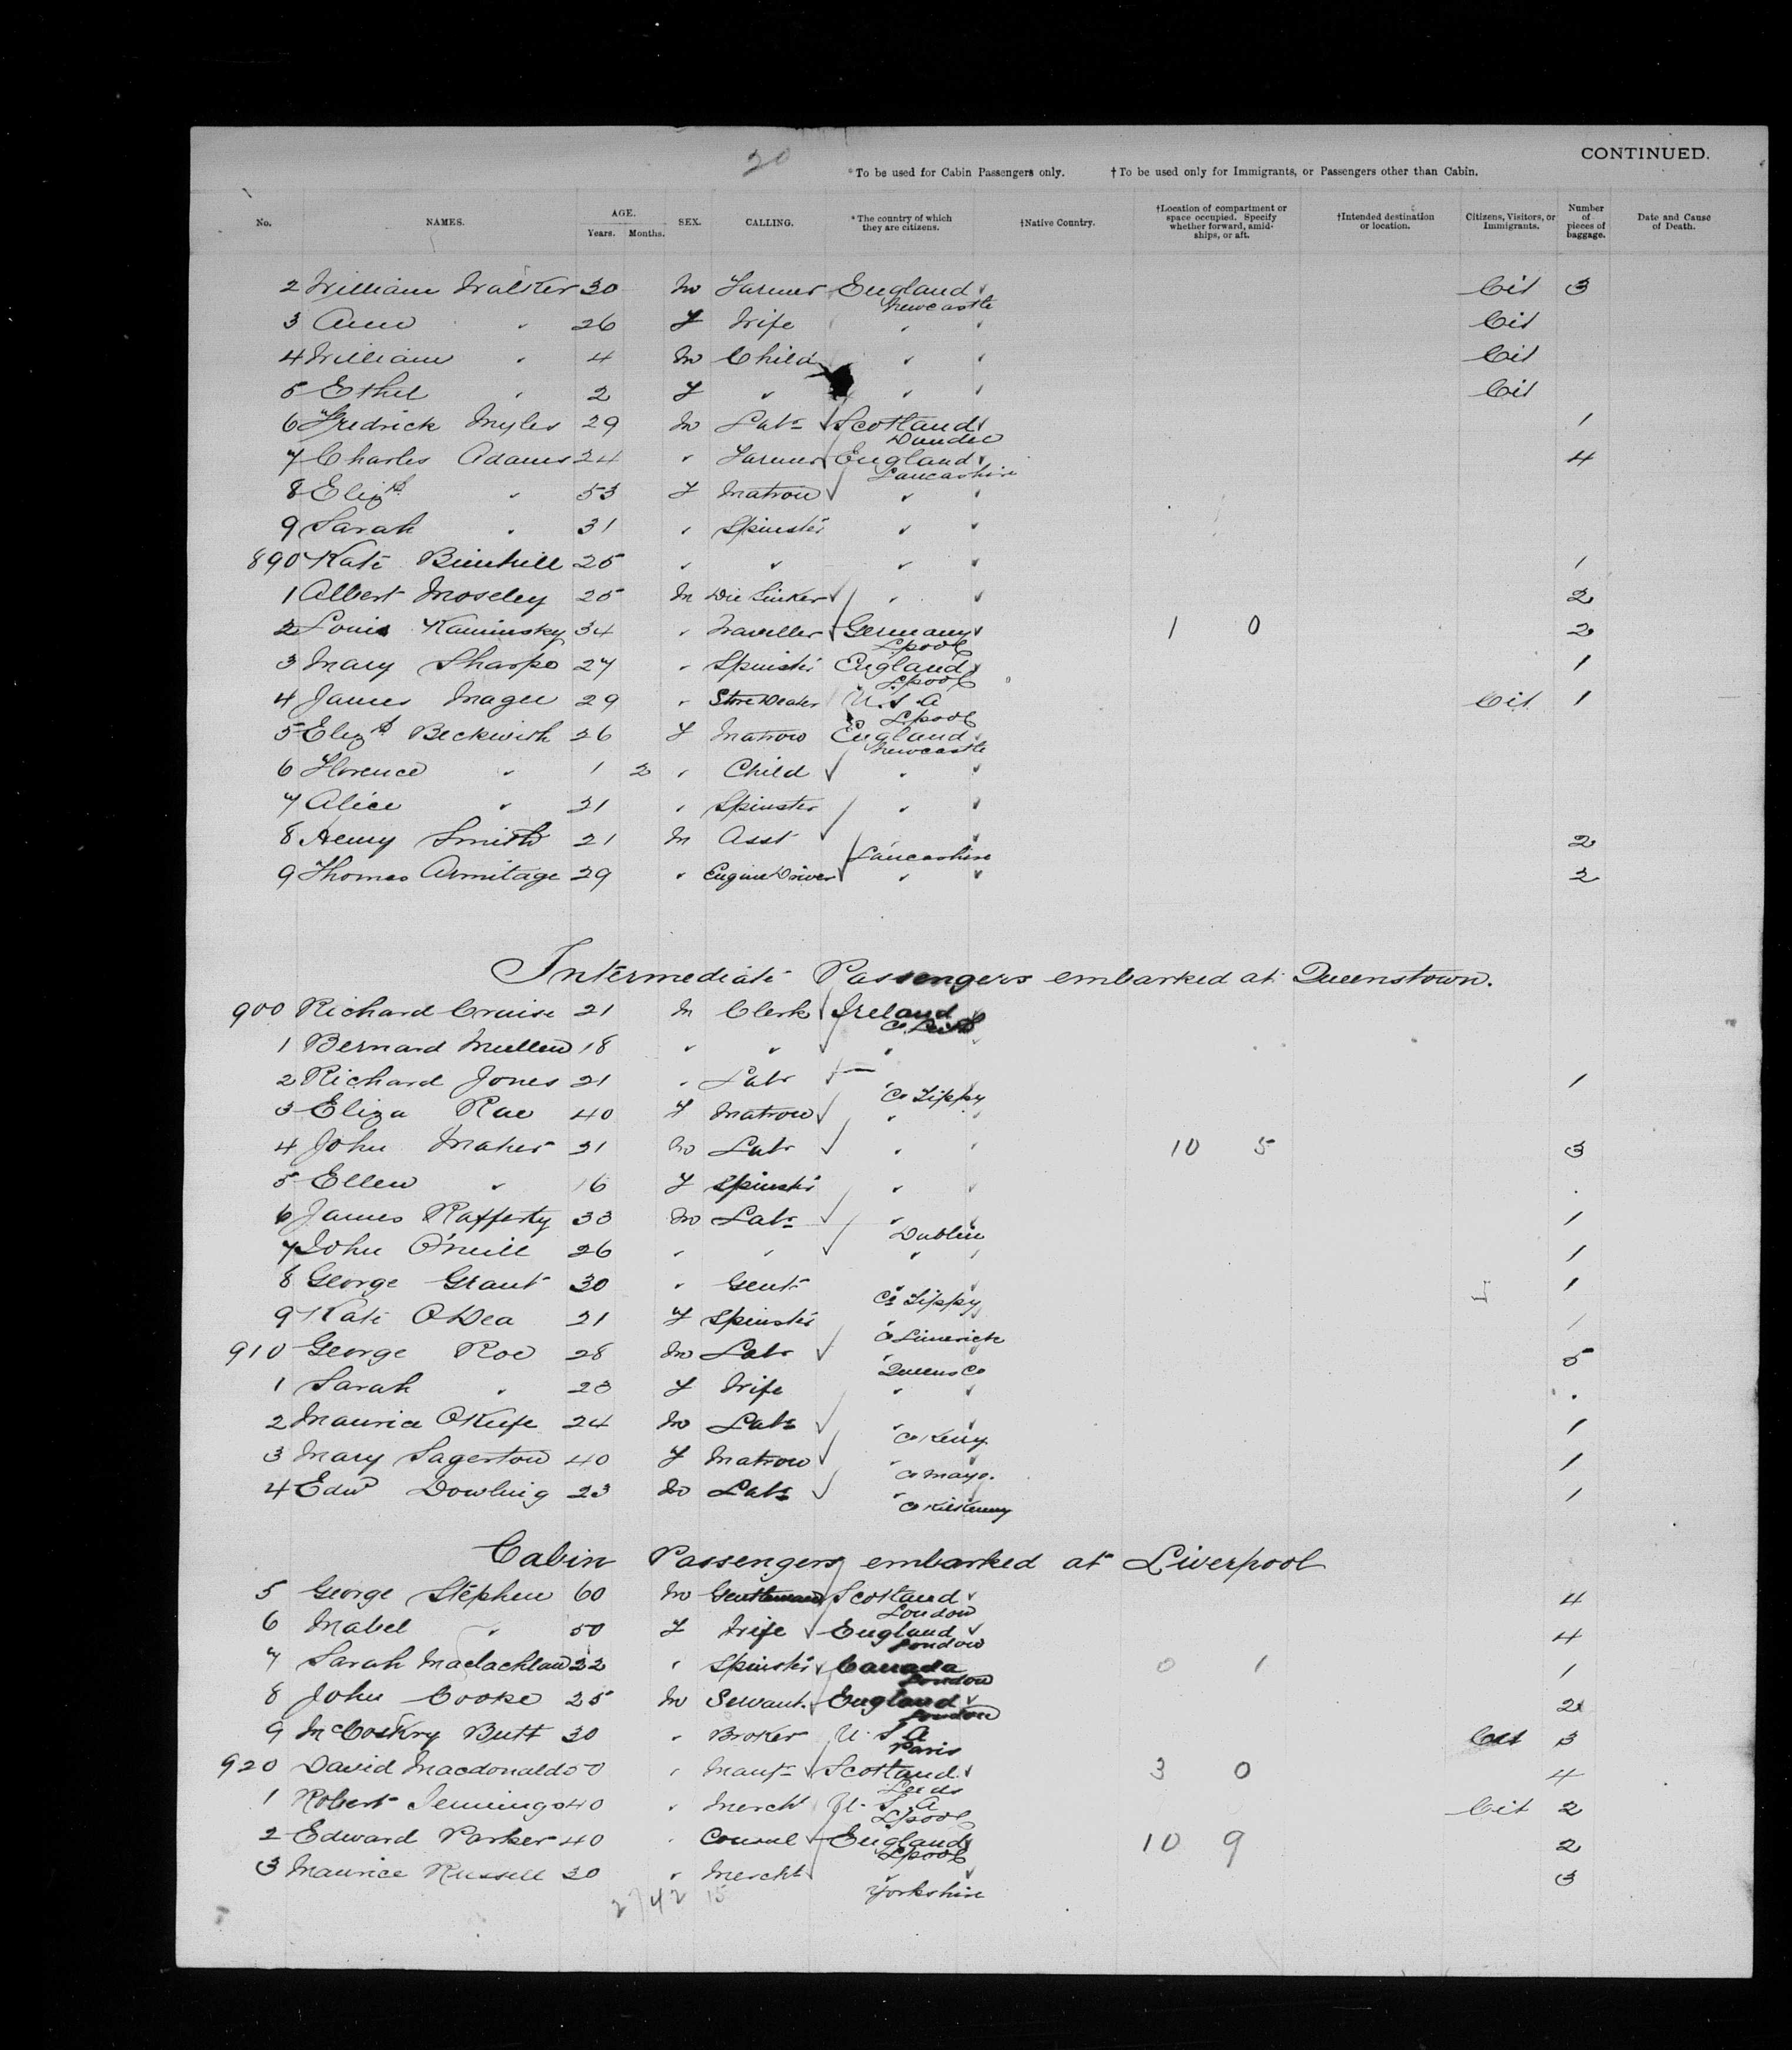 20
CONTINUED.
*To be used for Cabin Passengers only. †To be used only for Immigrants, or Passengers other than Cabin.
No. NAMES. AGE. Years. Months. SEX. CALLING. *The country of which they are citizens. †Native Country. †Location of compartment or space occupied. Specify whether forward, amidships, or aft. †Intended destination or location. Citizens, Visitors, or Immigrants. Number of pieces of baggage. Date and Cause of Death.
2 William Walker 30 M Farmer England Newcastle Cit 3
3 Ann " 26 F Wife " Cit
4 William " 4 M Child " Cit
5 Ethel " 2 F " " Cit
6 Fredrick Myles 29 M Labr Scotland Dundee 1
7 Charles Adams 24 " Farmer England Lancashire 4
8 Elizth " 53 F Matron "
9 Sarah " 31 " Spinster "
890 Kate 25 " " " 1
1 Albert Moseley 25 M Die Sinker " 2
2 Louis Kaminsky 34 " Traveller Germany Lpool 1 0 2
3 Mary Sharpe 27 " Spinster England Lpool 1
4 James Magee 29 " Store Dealer U.S.A Lpool Cit 1
5 Elizth Beckwith 26 F Matron England Newcastle
6 Florence " 1 2 " Child "
7 Alice " 21 " Spinster "
8 Henry Smith 21 M Asst Lancashire 2
9 Thomas Armitage 29 " Engine Driver " 2
Intermediate Passengers embarked at Queenstown.
900 Richard Cruise 21 M Clerk Ireland Co
1 Bernard Mullen 18 " " "
2 Richard Jones 21 " Labr Co Tippy 1
3 Eliza Rae 40 F Matron "
4 John Maher 21 M Labr " 10 5 3
5 Ellen " 16 F Spinster "
6 James Rafferty 33 M Labr " Dublin 1
7 John O'Neill 26 " " " 1
8 George Grant 30 " Gent Co Tippy 1
9 Kate O'Dea 21 F Spinster " Co Limerick 1
910 George Roe 28 M Labr " Queens Co 5
1 Sarah " 23 F Wife "
2 Maurice O'Keefe 24 M Labr " Co Kerry 1
3 Mary Sagerton 40 F Matron " Co Mayo. 1
4 Edwd Dowling 23 M Labr " Co Kilkenny 1
Cabin Passengers embarked at Liverpool
5 George Stephen 60 M Gentleman Scotland London 4
6 Mabel " 50 F Wife England London 4
7 Sarah Maclachlan 22 " Spinster Canada London 0 1 1
8 John Cooke 25 M Servant England London 2
9 McCoskry Butt 30 " Broker U.S.A Paris Cit 3
920 David Macdonald 50 " Manfr Scotland Leeds 3 0 4
1 Robert Jennings 40 " Mercht U.S.A Lpool Cit 2
2 Edward Parker 40 " Consul England Lpool 10 9 2
3 Maurice Russell 30 " Mercht " Yorkshire 3
2742 15